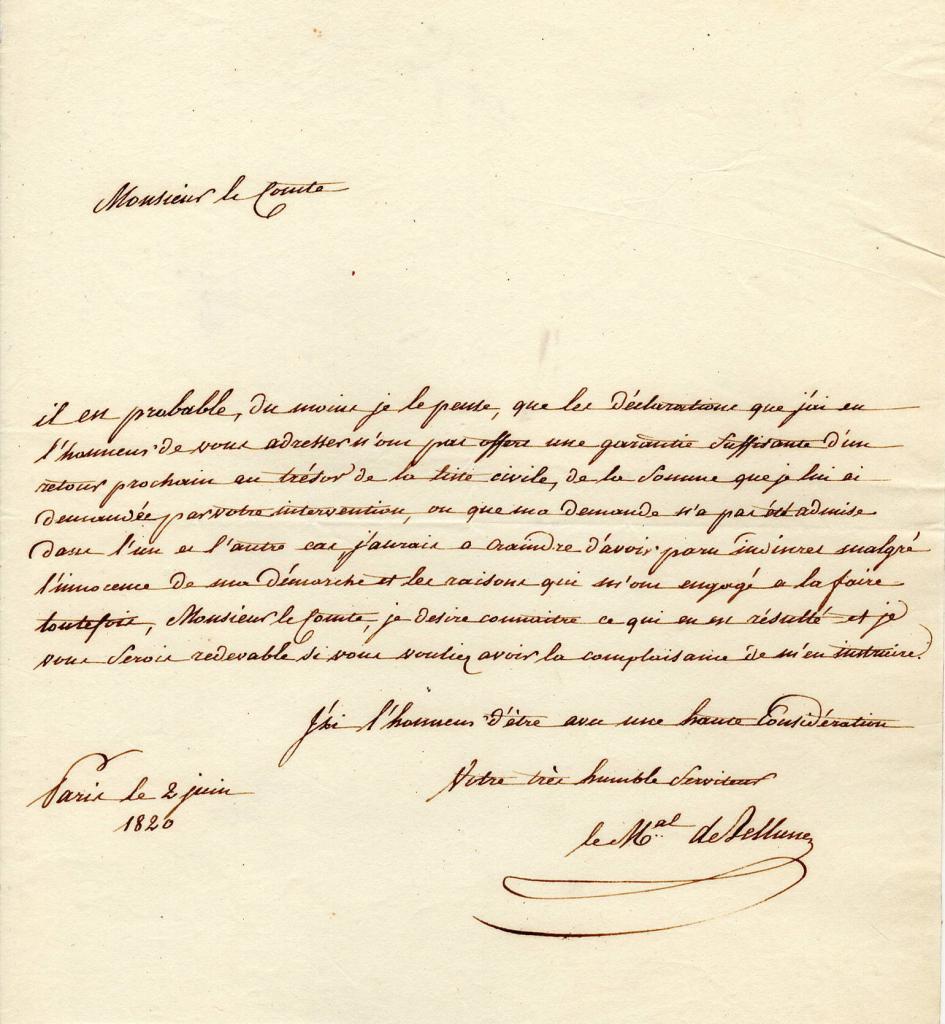 Monsieur le Comte
il est probable, du moins je le pense, que les déclarations que j'ai eu
l'honneur de vous adresser n'ont pas offert une garantie suffisante d'un
retour prochain au trésor de la liste civile, de la somme que je lui ai
demandée par votre intervention, ou que ma demande n'a pas été admise
dans l'un et l'autre cas j'aurais a craindre d'avoir paru indiscret malgré
l'innocence de ma démarche et les raisons qui m'ont engagé a la faire
toutefois, Monsieur le Comte, je desire connaitre ce qui en est résulté et je
vous serois redevable si vous vouliez avoir la complaisance de m'en instruire.
J'ai l'honneur d'être avec une haute Considération
Votre très humble Serviteur
Paris le 2 juin
1820
le Mal de Bellune